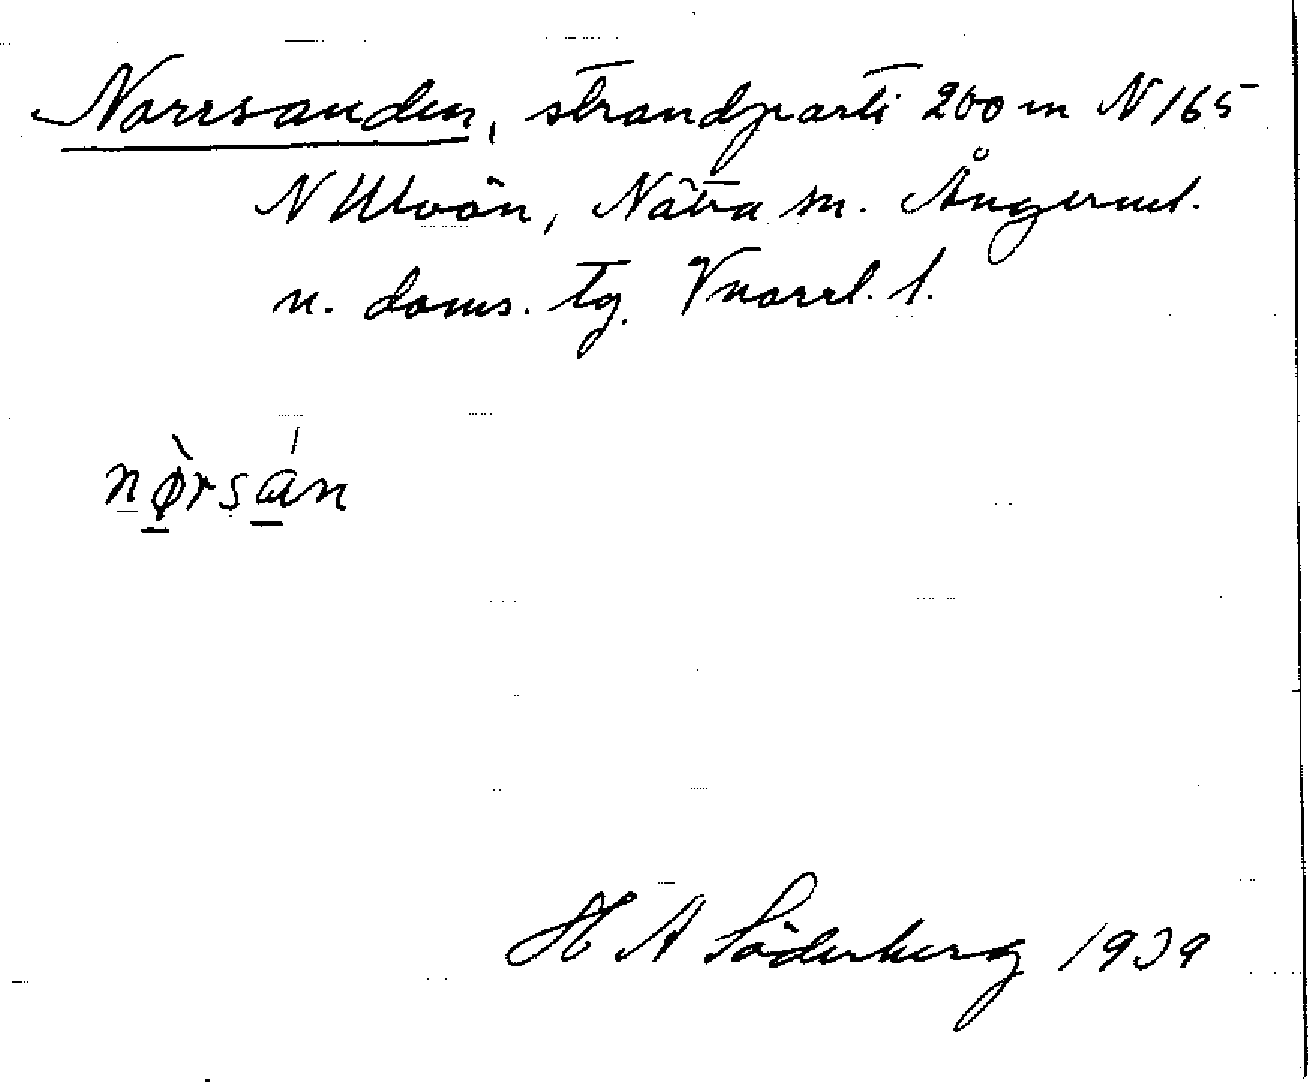 Norrsanden, strandparti 200 m N 165
N Ulvön, Nätra sn. Ångerml.
n. doms. tg. Vnorrl. l.
nø̀rsán
H A Söderberg 1939